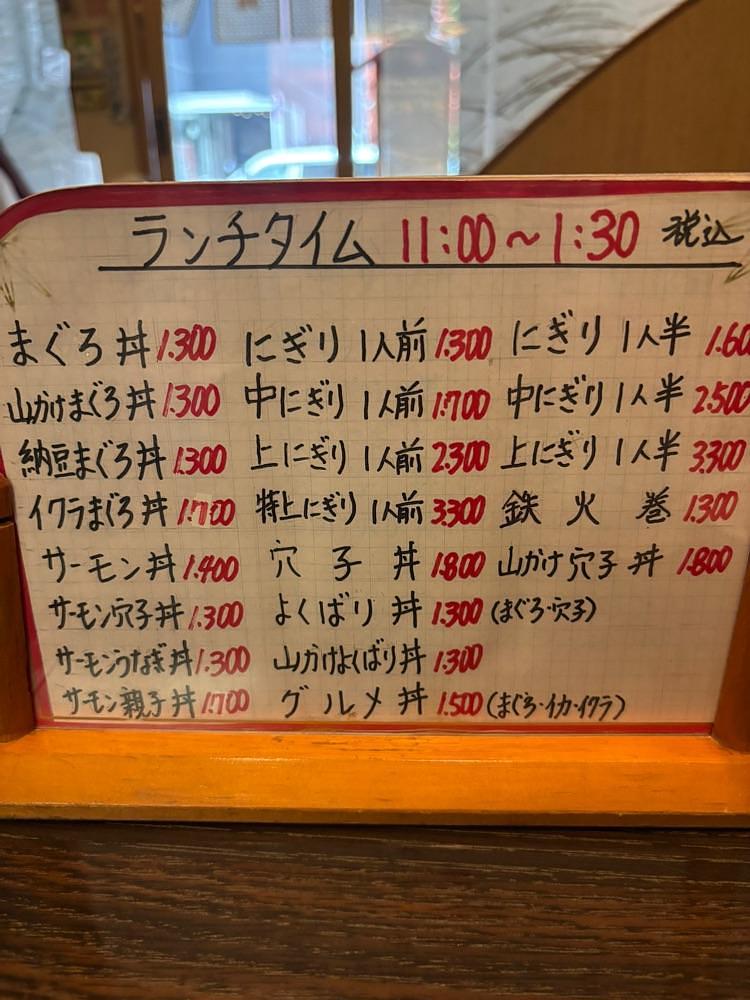 ランチタイム 11:00～1:30 税込
まぐろ丼 1.300 にぎり 1人前 1.300 にぎり 1人半 1.60
山かけまぐろ丼 1.300 中にぎり 1人前 1.700 中にぎり 1人半 2.500
納豆まぐろ丼 1.300 上にぎり 1人前 2.300 上にぎり 1人半 3.300
イクラまぐろ丼 1.700 特上にぎり 1人前 3.300 鉄火巻 1.300
サーモン丼 1.400 穴子丼 1.800 山かけ穴子丼 1.800
サーモン穴子丼 1.300 よくばり丼 1.300 (まぐろ・穴子)
サーモンうなぎ丼 1.300 山かけよくばり丼 1.300
サーモン親子丼 1.700 グルメ丼 1.500 (まぐろ・イカ・イクラ)